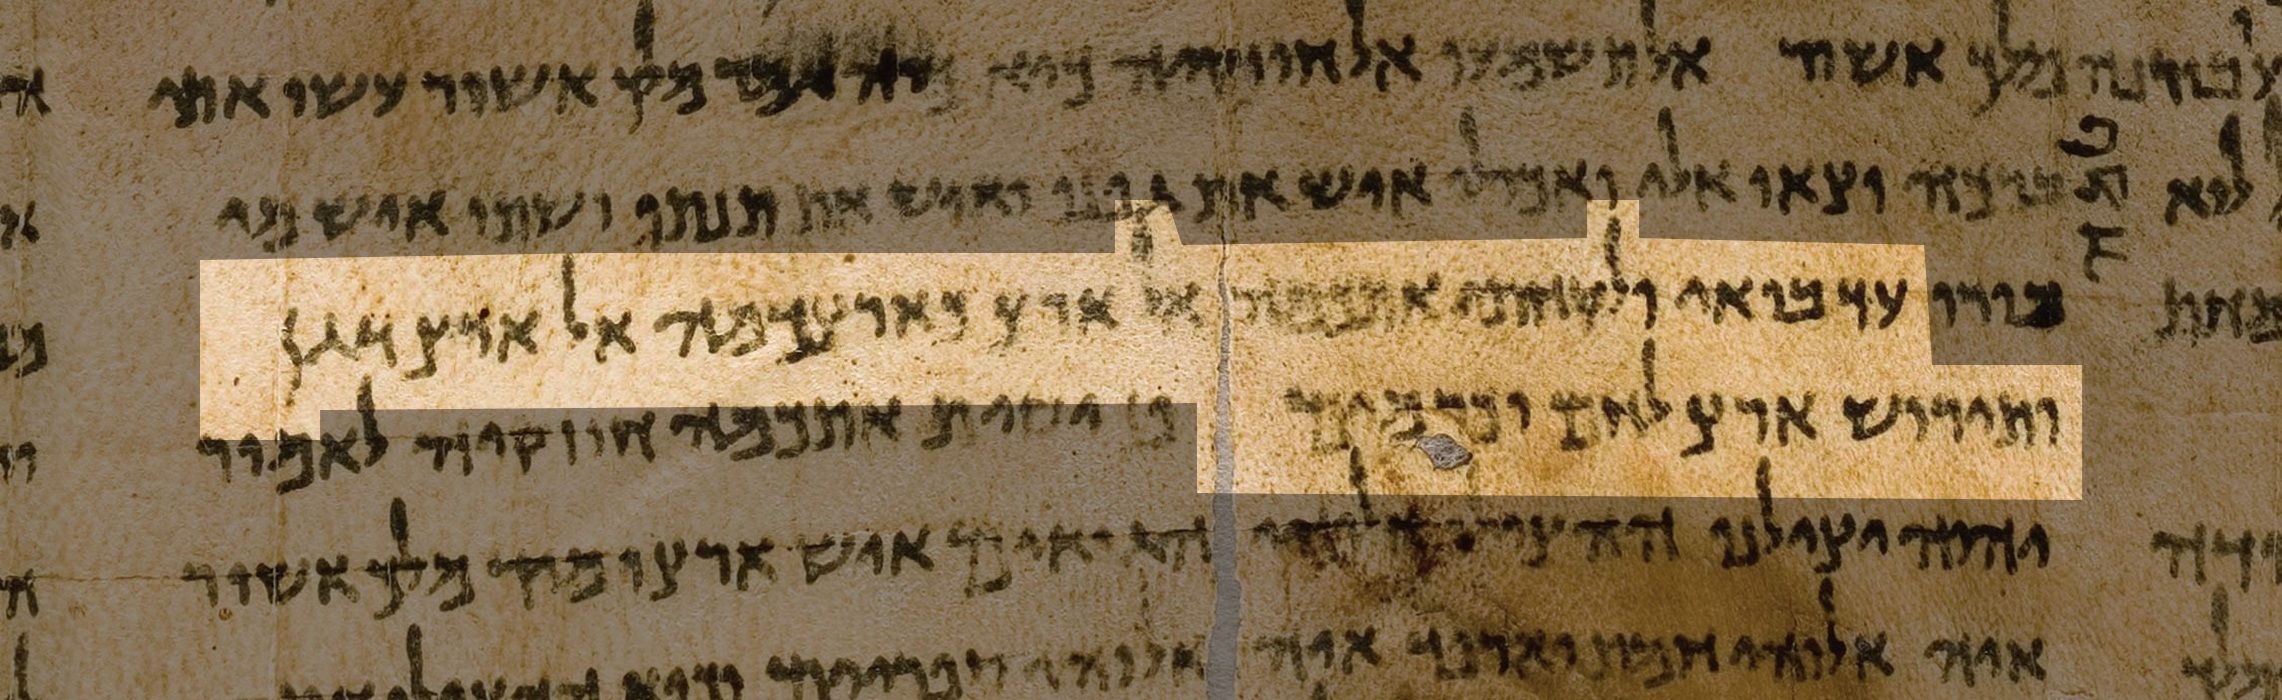 מלך אשור אל תשמעו אל חזקיה כיא כוה אמר מלך אשור עשו אתי
ברכה וצאו אלי ואכולו איש את גפנו ואיש את תנתו ושתו איש מי
בורו עד בואי ולקחתי אתכמה אל ארץ כארצכמה אל ארץ דגן
ותירוש ארץ לחם וכרמים פן יסית אתכמה חזקיה לאמור
יהוה יצילנו ההצילו אלוהי הגואים איש ארצו מיד מלך אשור
איה אלוהי חמת וארפד איה אלוהי ספרוים